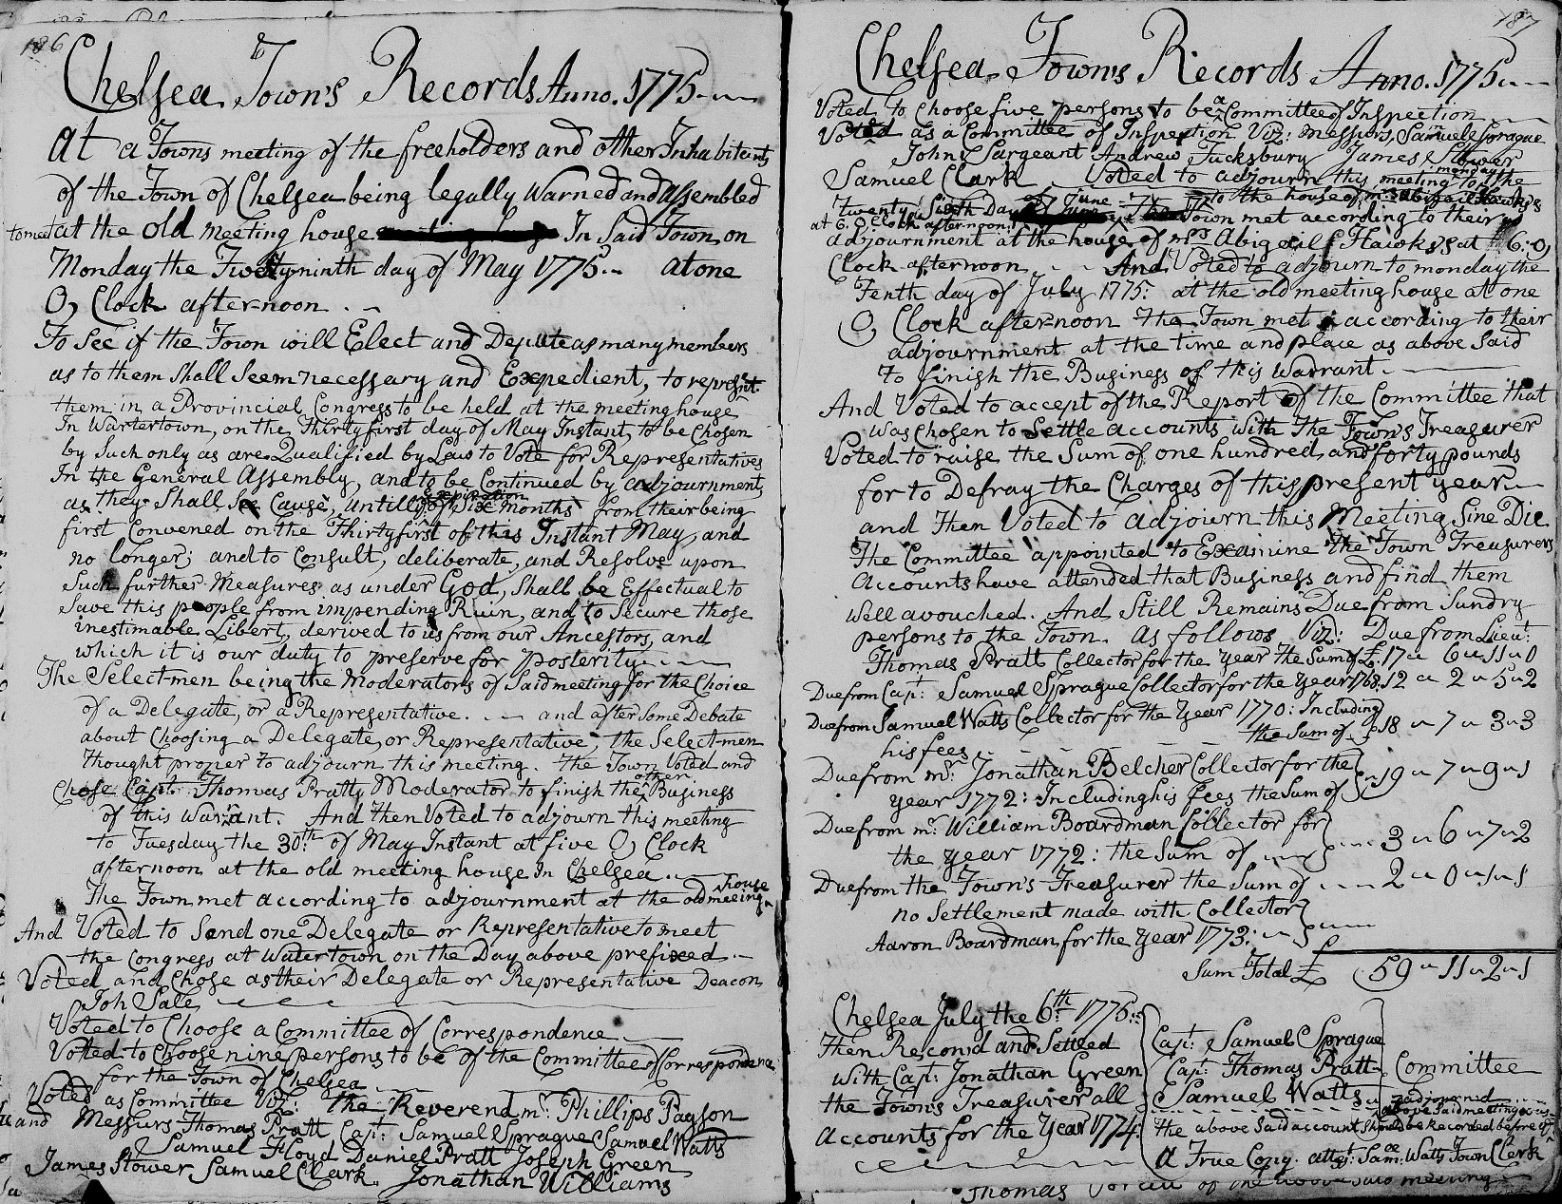 186
Chelsea Town's Records Anno. 1775
At a Towns meeting of the freeholders and other Inhabitents
of the Town of Chelsea being legally Warned and Assembled
to meet at the old meeting house In Said Town, on
Monday the Twenty ninth day of May 1775 at one
O, Clock after-noon
To See if the Town will Elect and Depute as many members
as to them Shall Seem necessary and Expedient, to represent
them in a Provincial Congress to be held at the meeting house
In Wartertown, on the Thirty first day of May Instant, to be Chosen
by Such only as are Qualified by Law to Vote for Representatives
In the General Assembly, and to be Continued by adjournment,
as they Shall See Cause, untill expiration of Six months from their being
first Convened on the Thirty first of this Instant May, and
no longer; and to Consult, deliberate, and Resolve upon
Such further Measures as under God, Shall be Effectual to
Save this people from impending Ruin, and to Secure those
inestimable Libert, derived to us from our Ancestors, and
which it is our duty to preserve for posterity
The Selectmen being the Moderators of Said meeting for the Choice
of a Delegate, or a Representative. and after Some Debate
about Choosing a Delegate, or Representative, the Selectmen
thought proper to adjourn this meeting. the Town Voted and
Chose Capt. Thomas Pratt, Moderator to finish the other Business
of this Warrant. And then Voted to adjourn this meeting
to Tuesday the 30th. of May Instant at five O, Clock
afternoon at the old meeting house In Chelsea.
The Town met according to adjournment at the old meeing house
And Voted to Send one Delegate or Representative to meet
the Congress at Watertown on the Day above prefixed.
Voted and Chose as their Delegate or Representative Deacon
Joh Sale
Voted to Choose a Committee of Correspondence
Voted to Choose nine persons to be of the Committee of Correspondence
for the Town of Chelsea
Voted as Committee Viz: the Reverend mr. Phillips Payson
and Messurs Thomas Pratt Capt: Samuel Sprague Samuel Watts
Samuel Floyd Daniel Pratt Joseph Green
James Stower Samuel Clark Jonathan Williams
187
Chelsea Town's Records Anno. 1775
Voted to Choose five persons to be a Committee of Inspection
Voted as a Committee of Inspection Viz: Messurs, Samuel Sprague
John Sargeant Andrew Tucksbury James Stower
Samuel Clark Voted to adjourn this meeting to monday the
twenty Sixth Day of June to the house of mrs Abigail Hawks
at 6. O, Clock afternoon. Town met according to their
adjournment at the house of mrs Abigeil Hawks, at 6: O,
Clock afternoon And Voted to adjourn to monday the
Tenth day of July 1775: at the old meeting house at one
O, Clock after-noon the Town met according to their
adjournment at the time and place as above Said
to finish the Business of this Warrant.
And Voted to accept of the Report of the Committee that
was Chosen to Settle accounts with the Town's Treasurer
Voted to raise the Sum of one hundred and forty pounds
for to Defray the Charges of this present year
and Then Voted to adjourn this Meeting Sine Die
The Committee appointed to Examine the Town Treasurers
Accounts have attended that Business and find them
well avouched. And Still Remains Due from Sundry
persons to the Town. As follows Viz: Due from Lieut:
Thomas Pratt Collector for the Year the Sum of £ 17 " 6 " 11 " 0
Due from Capt: Samuel Sprague Collector for the Year 1768. 12 " 2 " 5 " 2
Due from Samuel Watts Collector for the Year 1770: Including
his fees the Sum of £ 18 " 7 " 3 " 3
Due from mr. Jonathan Belcher Collector for the
year 1772: Including his fees the Sum of 19 " 7 " 9 " 1
Due from mr. William Boardman Collector for
the year 1772: the Sum of 3 " 6 " 7 " 2
Due from the Town's Treasurer the Sum of 2 " 0 " 1 " 1
no Settlement made with Collector
Aaron Boardman for the Year 1773:
Sum Total £ 59 " 11 " 2 " 1
Chelsea July the 6th. 1775
Then Recond and Settled
with Capt: Jonathan Green
the Town's Treasurer all
accounts for the Year 1774.
Capt: Samuel Sprague
Capt: Thomas Pratt
Samuel Watts
Committee
the above Said account Should be Recorded before ye
adjoerned
above Said meeting
A True Copy. attst: Saml: Watts Town Clerk
Thomas of the above Said meeting